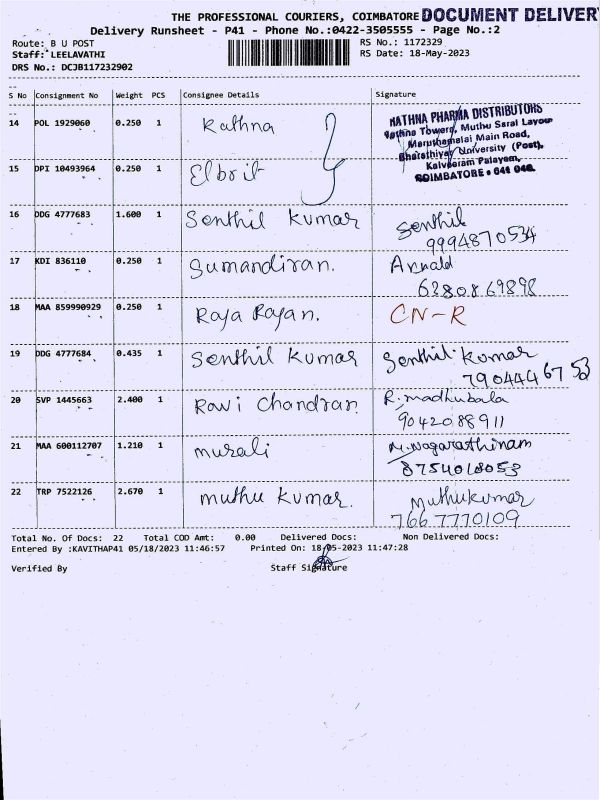 THE PROFESSIONAL COURIERS, COIMBATORE DOCUMENT DELIVERY
Delivery Runsheet - P41 - Phone No.:0422-3505555 - Page No.:2
Route: B U POST RS No.: 1172329
Staff: LEELAVATHI RS Date: 18-May-2023
DRS No.: DCJB117232902
S No Consignment No Weight PCS Consignee Details Signature
14 POL 1929060 0.250 1 Rathna RATHNA PHARMA DISTRIBUTORS
Rathna Towers, Muthu Saral Layour
Maruthamalai Main Road,
Bharathiyar University (Post),
Kalveeram Palayam,
COIMBATORE - 641 046.
15 DPI 10493964 0.250 1 Elbrit
16 DDG 4777683 1.600 1 Senthil Kumar Senthil
9994870534
17 KDI 836110 0.250 1 Sumandiran. Arnald
6380869898
18 MAA 859990929 0.250 1 Raja Rajan. CN-R
19 DDG 4777684 0.435 1 Senthil Kumar Senthil Kumar
7904446753
20 SVP 1445663 2.400 1 Ravi Chandran R. madhubala
9042088911
21 MAA 600112707 1.210 1 murali M. Nagarathinam
8754018053
22 TRP 7522126 2.670 1 muthu Kumar. Muthukumar
7667770109
Total No. Of Docs: 22 Total COD Amt: 0.00 Delivered Docs: Non Delivered Docs:
Entered By :KAVITHAP41 05/18/2023 11:46:57 Printed On: 18-05-2023 11:47:28
Verified By Staff Signature